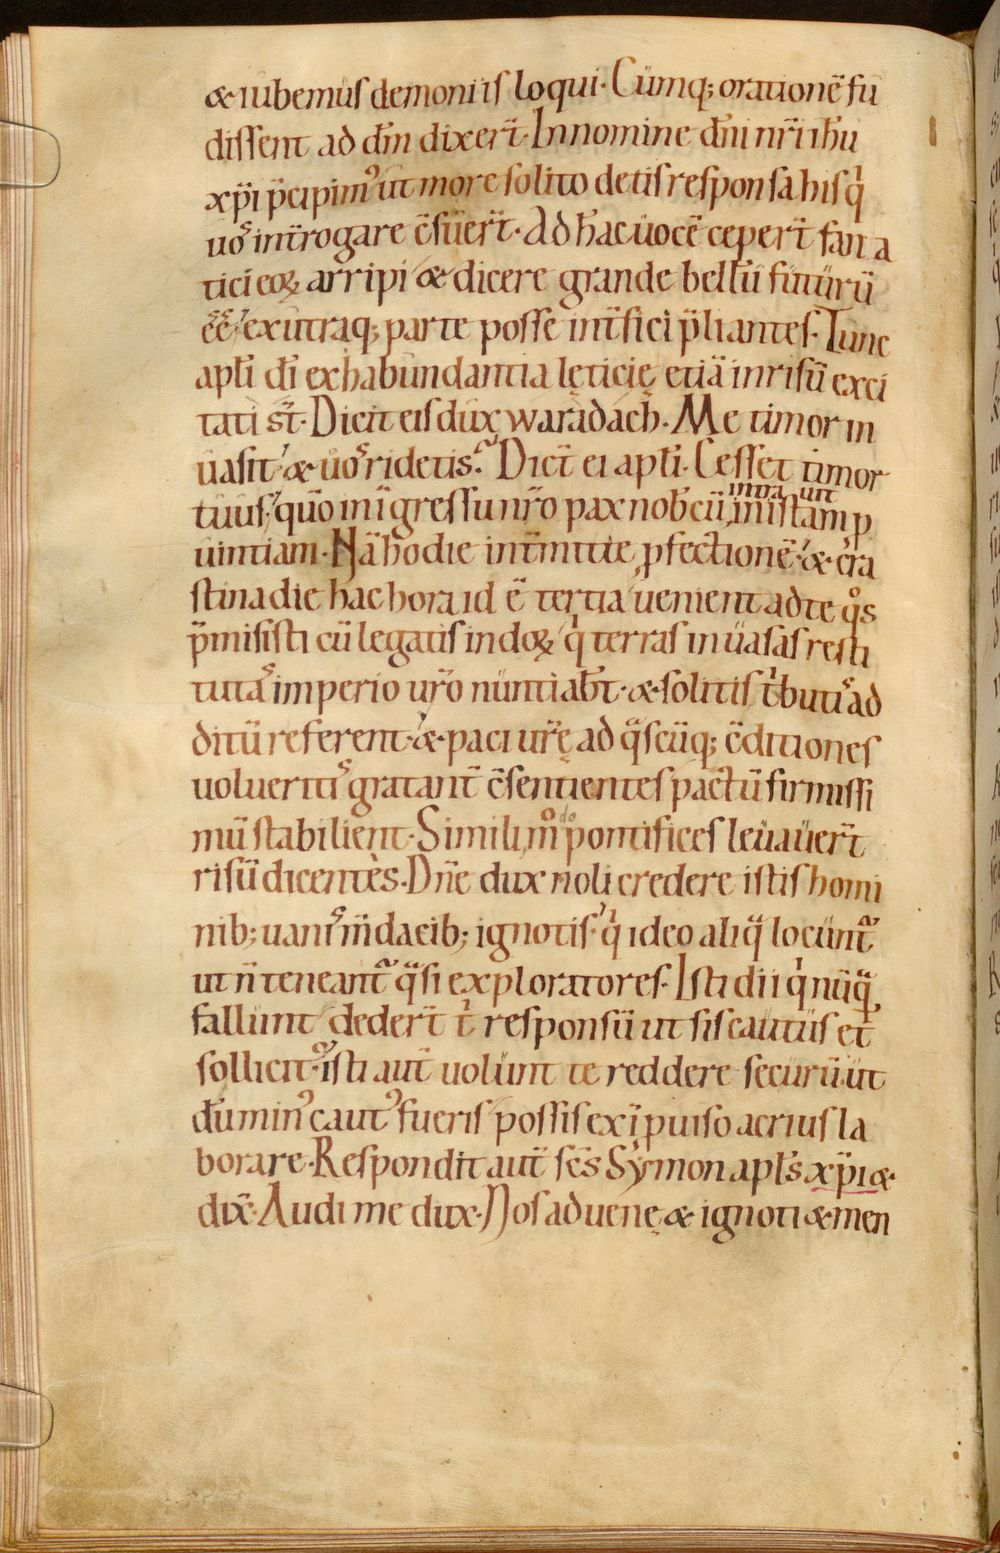 & iubemus demoniis loqui. Cumq; orationē fu
dissent ad dm̄ dixer̄t. In nomine dn̄i nr̄i ihū
xp̄i p̄cipim᾽ ut more solito detis responsa his q̇
uos int̄rogare c̄sueīr̄t. Ad hac uocē ceper̄t fana
tici eoꝝ arripi & dicere grande bellū futurū
eē̄. ex utraq; parte posse int̄fici p̄liantes. Tunc
apl̄i dī ex habundantia lęticię etiā in risū exci
tati st̄. Dicit eis dux waradach. Me timor in
uasit & uos ridetis. Dict̄ ei apl̄i. Cesset timor
tuus. quō in īgressu nr̄o pax nob̄cū intra uit in istam p
uintiam. Nā hodie int̄mitte ꝓfectionē. & cra
stina die hac hora id ē tertia uenient ad te q̊s
p̄misisti cū legatis indoꝝ q̇ terras inuasas resti
tutas imperio ur̄o nuntiabt̄. & solitis ṫbutis ad
ditū referent. & paci ur̄ę ad q̄scūq; c̄ditiones
uolueritis gratant̄ c̄sentientes pactū firmissi
mū stabilient. Simili m̊do pontifices leuauer̄t
risū dicentes. Dn̄e dux noli credere istis homi
nib; uanis m̄dacib; ignotis. q̇ ideo aliq̄ locunt̄
ut n̄ teneant̄ q̄si exploratores. Isti dii q̇ nūq̄
fallunt dedert̄ ṫ responsū ut sis cautus et
sollicit᾽. isti aut̄ uolunt te reddere securū. ut
dū min᾽ caut᾽ fueris possis ex īprouiso acrius la
borare. Respondit aut̄ sc̄s Symon apl̄s xp̄i &
dix̄. Audi me dux. Nos aduenę & ignoti & men